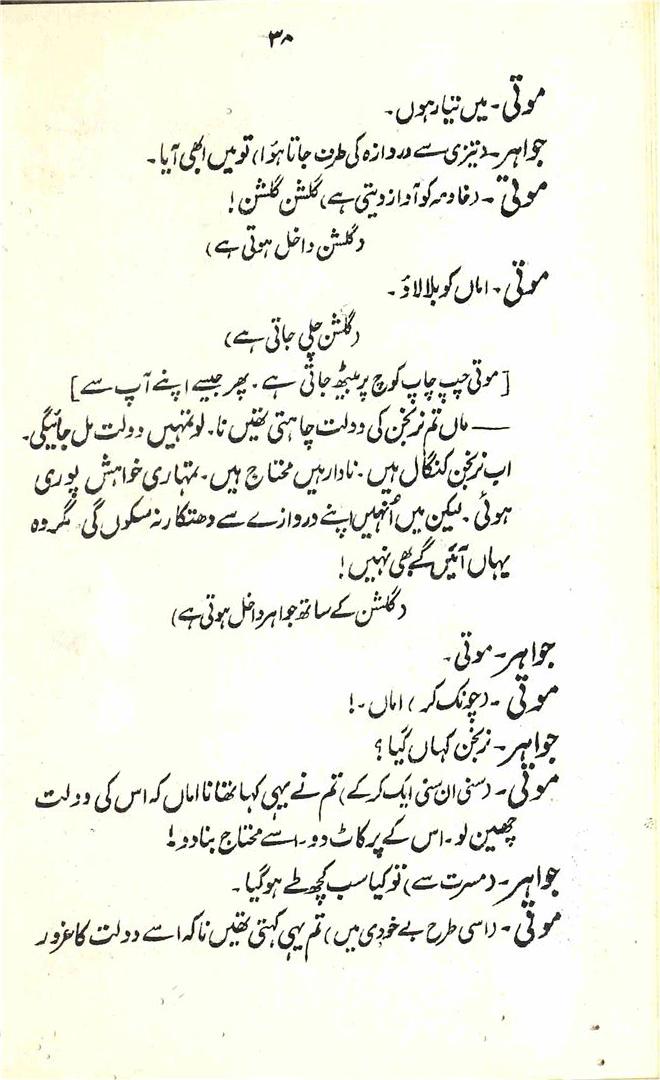 ۳۸
موتی۔ میں تیار ہوں۔
جواہر۔ (تیزی سے دروازہ کی طرف جاتا ہؤا) تو میں ابھی آیا۔
موتی۔ (خادمہ کو آواز دیتی ہے) گلشن گلشن!
(گلشن داخل ہوتی ہے)
موتی۔ اماں کو بلا لاؤ۔
(گلشن چلی جاتی ہے)
[موتی چپ چاپ کوچ پر بیٹھ جاتی ہے۔ پھر جیسے اپنے آپ سے]
— ماں تم نرنجن کی دولت چاہتی تھیں نا۔ لو تمہیں دولت مل جائیگی۔
اب نرنجن کنگال ہیں۔ نادار ہیں محتاج ہیں۔ تمہاری خواہش پوری
ہوئی۔ لیکن میں اُنہیں اپنے دروازے سے دھتکار نہ سکوں گی مگر وہ
یہاں آئیں گے بھی نہیں!
(گلشن کے ساتھ جواہر داخل ہوتی ہے)
جواہر۔ موتی۔
موتی۔ (چونک کر) اماں۔!
جواہر۔ نرنجن کہاں گیا؟
موتی۔ (سنی ان سنی ایک کر کے) تم نے یہی کہا تھا نا اماں کہ اس کی دولت
چھین لو۔ اس کے پر کاٹ دو۔ اسے محتاج بنا دو!
جواہر۔ (مسرت سے) تو کیا سب کچھ طے ہو گیا۔
موتی۔ (اسی طرح بے خودی میں) تم یہی کہتی تھیں نا کہ اسے دولت کا غرور